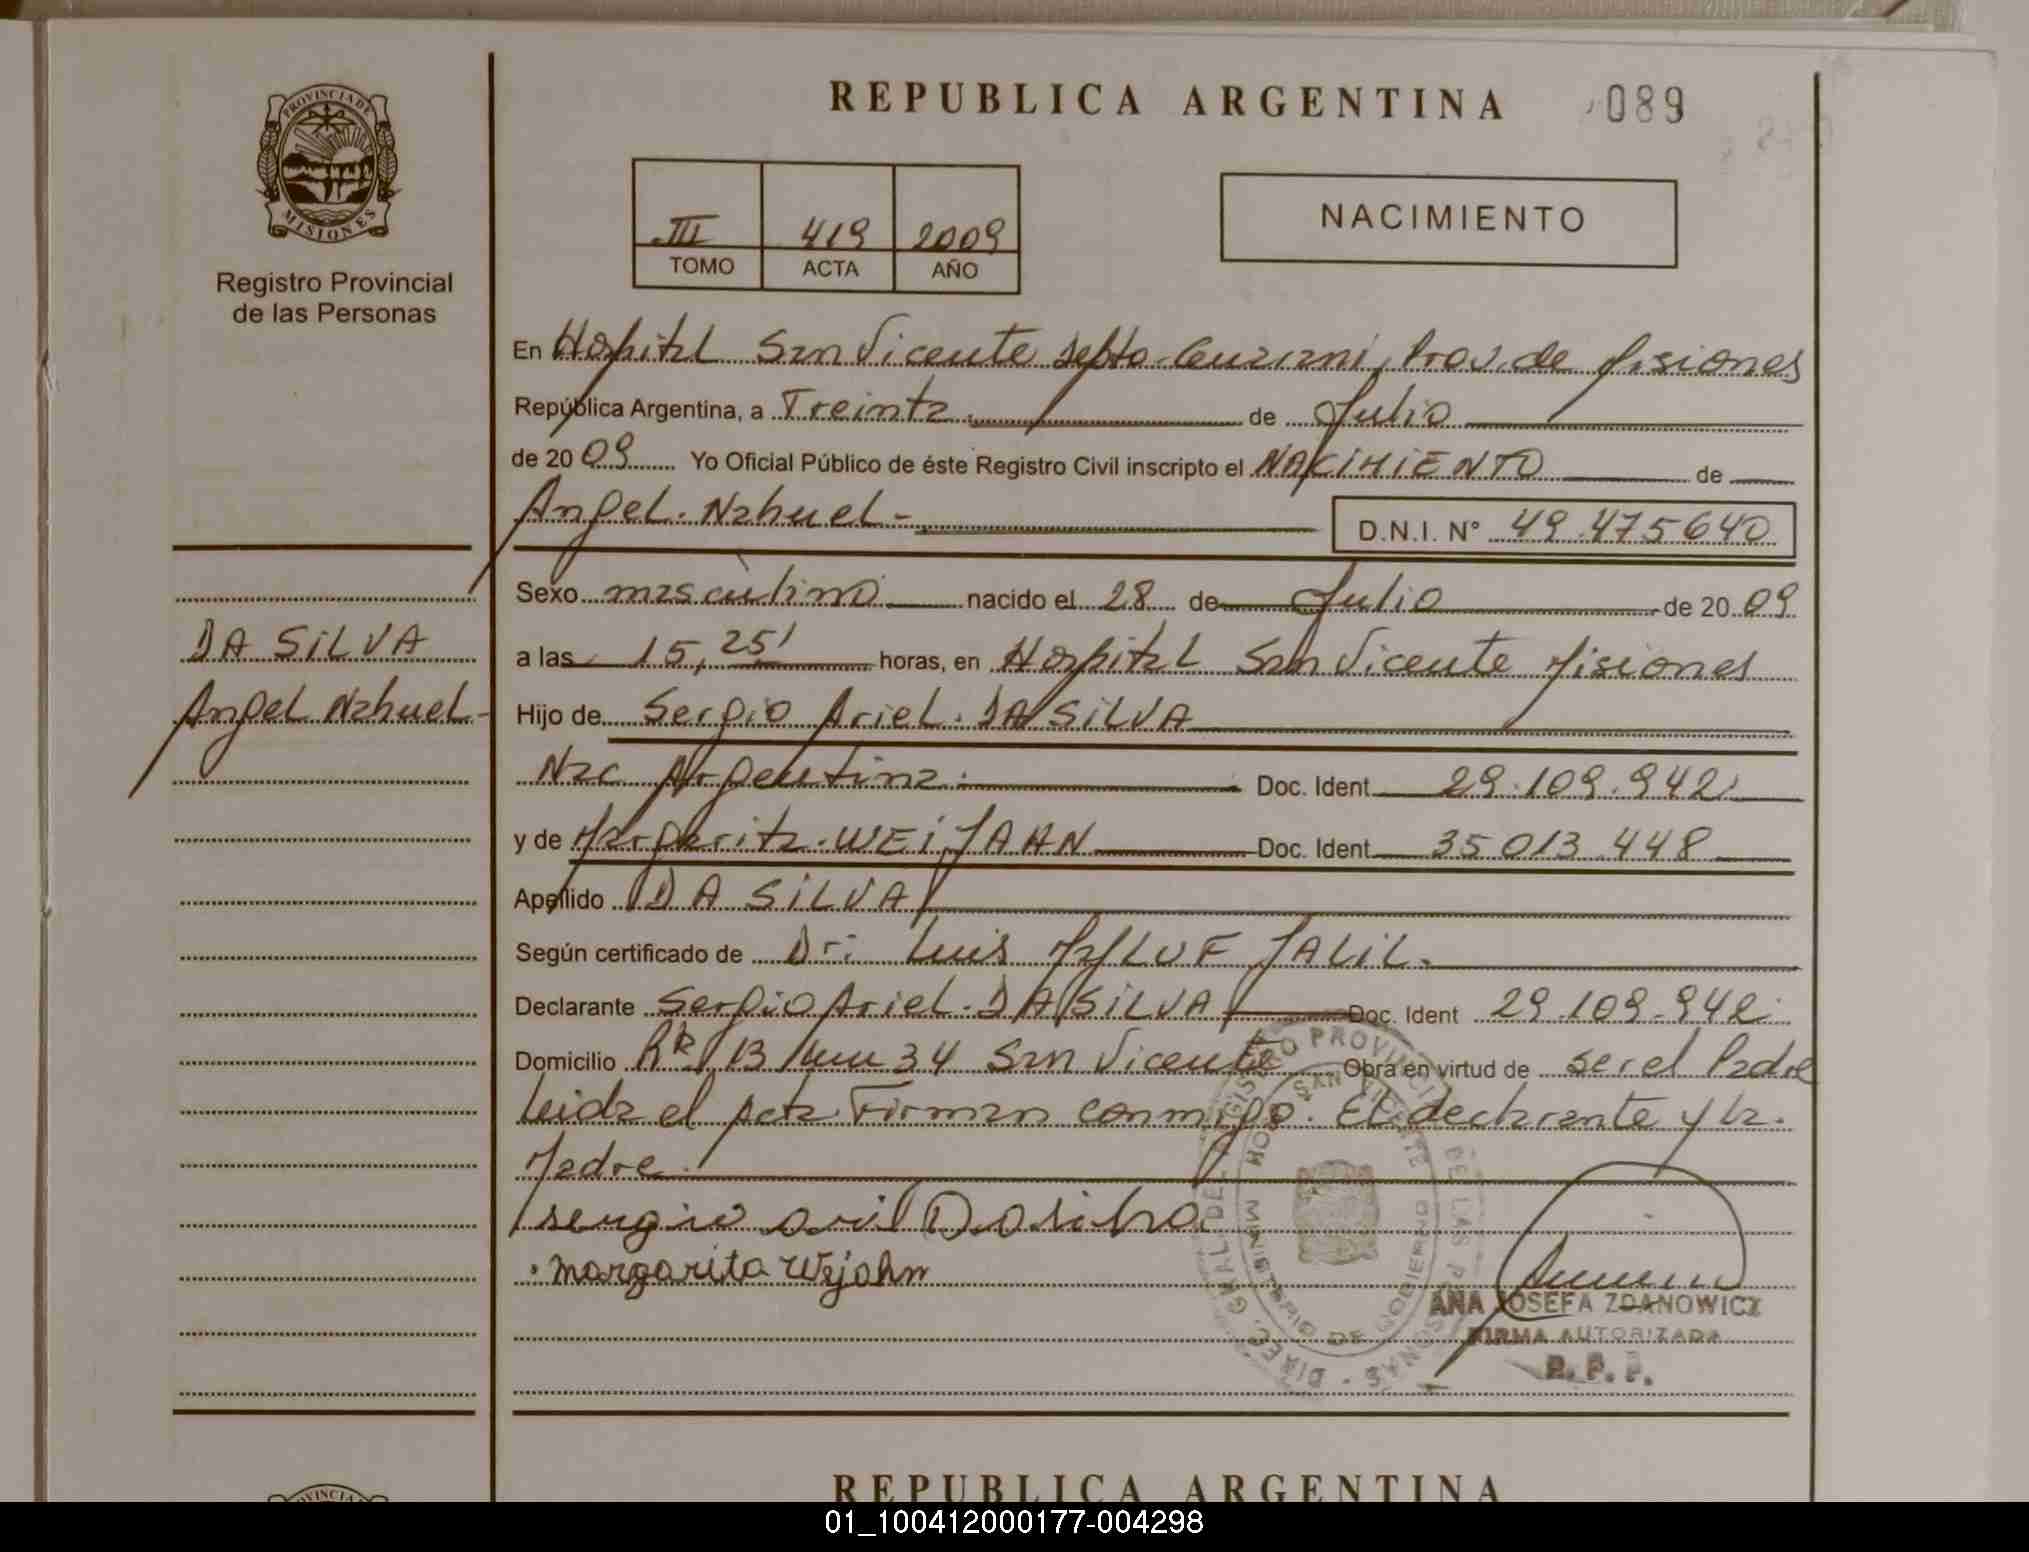 REPUBLICA ARGENTINA 089
PROVINCIA DE
MISIONES
Registro Provincial
de las Personas
III 419 2009
TOMO ACTA AÑO
NACIMIENTO
En Hospital San Vicente Depto. Guarani, Prov. de Misiones
República Argentina, a Treinta de Julio
de 2009 Yo Oficial Público de éste Registro Civil inscripto el NACIMIENTO de
Angel Nahuel- D.N.I. N° 49.475640
Sexo masculino nacido el 28 de Julio de 2009
DA SILVA
Angel Nahuel-
a las 15,25' horas, en Hospital San Vicente Misiones
Hijo de Sergio Ariel. DA SILVA
Nac Argentina. Doc. Ident 29.109.942
y de Margarita. WEIJAHN Doc. Ident 35013.448
Apellido DA SILVA
Según certificado de Dr: Luis JALIL.
Declarante Sergio Ariel. DA SILVA Doc. Ident 29.109.942
Domicilio 13 Km 34 San Vicente Obra en virtud de ser el Padre
leida el Acta Firman conmigo. El declarante y la
Madre.
sergio Da silva
margarita Wejahn
DIREC. GRAL. DEL REGISTRO PROVINCIAL DE LAS PERSONAS
HOSP. SAN VICENTE
MINISTERIO DE GOBIERNO
ANA JOSEFA ZDANOWICZ
FIRMA AUTORIZADA
R. P. P.
REPUBLICA ARGENTINA
01_100412000177-004298